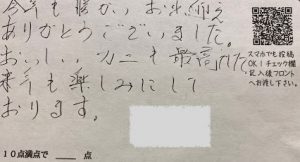 今年も暖かいお出迎え
ありがとうございました。
おいしいカニも最高でした
来年も楽しみにして
おります。
スマホでも投稿
OK!チェック欄
記入後フロント
へお渡し下さい。
10点満点で 点